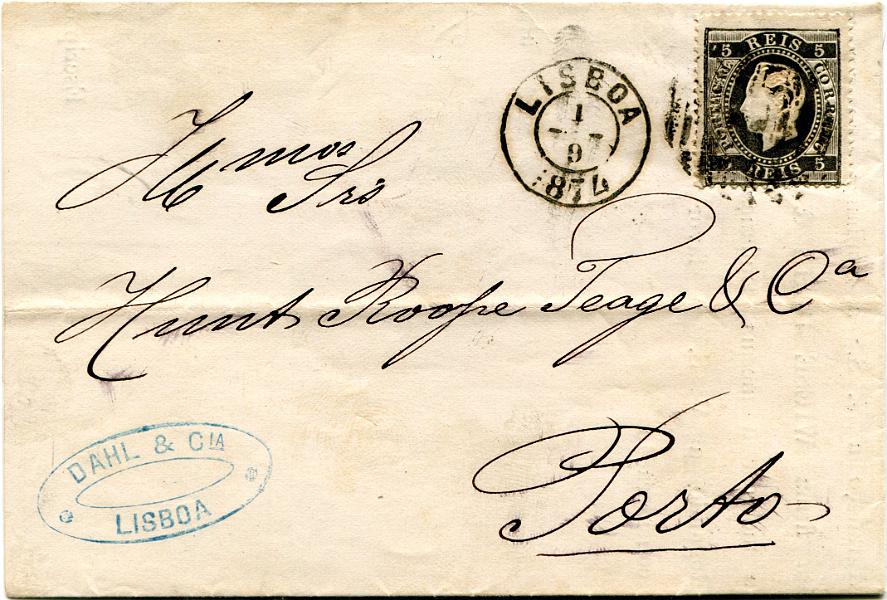 5 REIS 5
PORTUGAL CORREIO
REIS 5
LISBOA
1
9
1874
Illmos
Srs
Hunt Roope Teage & Ca
Porto
DAHL & CIA
LISBOA